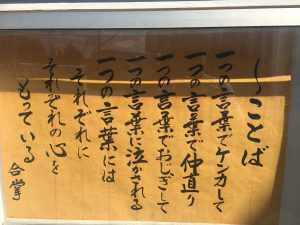 ことば
一つの言葉でケンカして
一つの言葉で仲直り
一つの言葉でおじぎして
一つの言葉に泣かされる
一つの言葉には
それぞれに
それぞれの心を
もっている
合掌